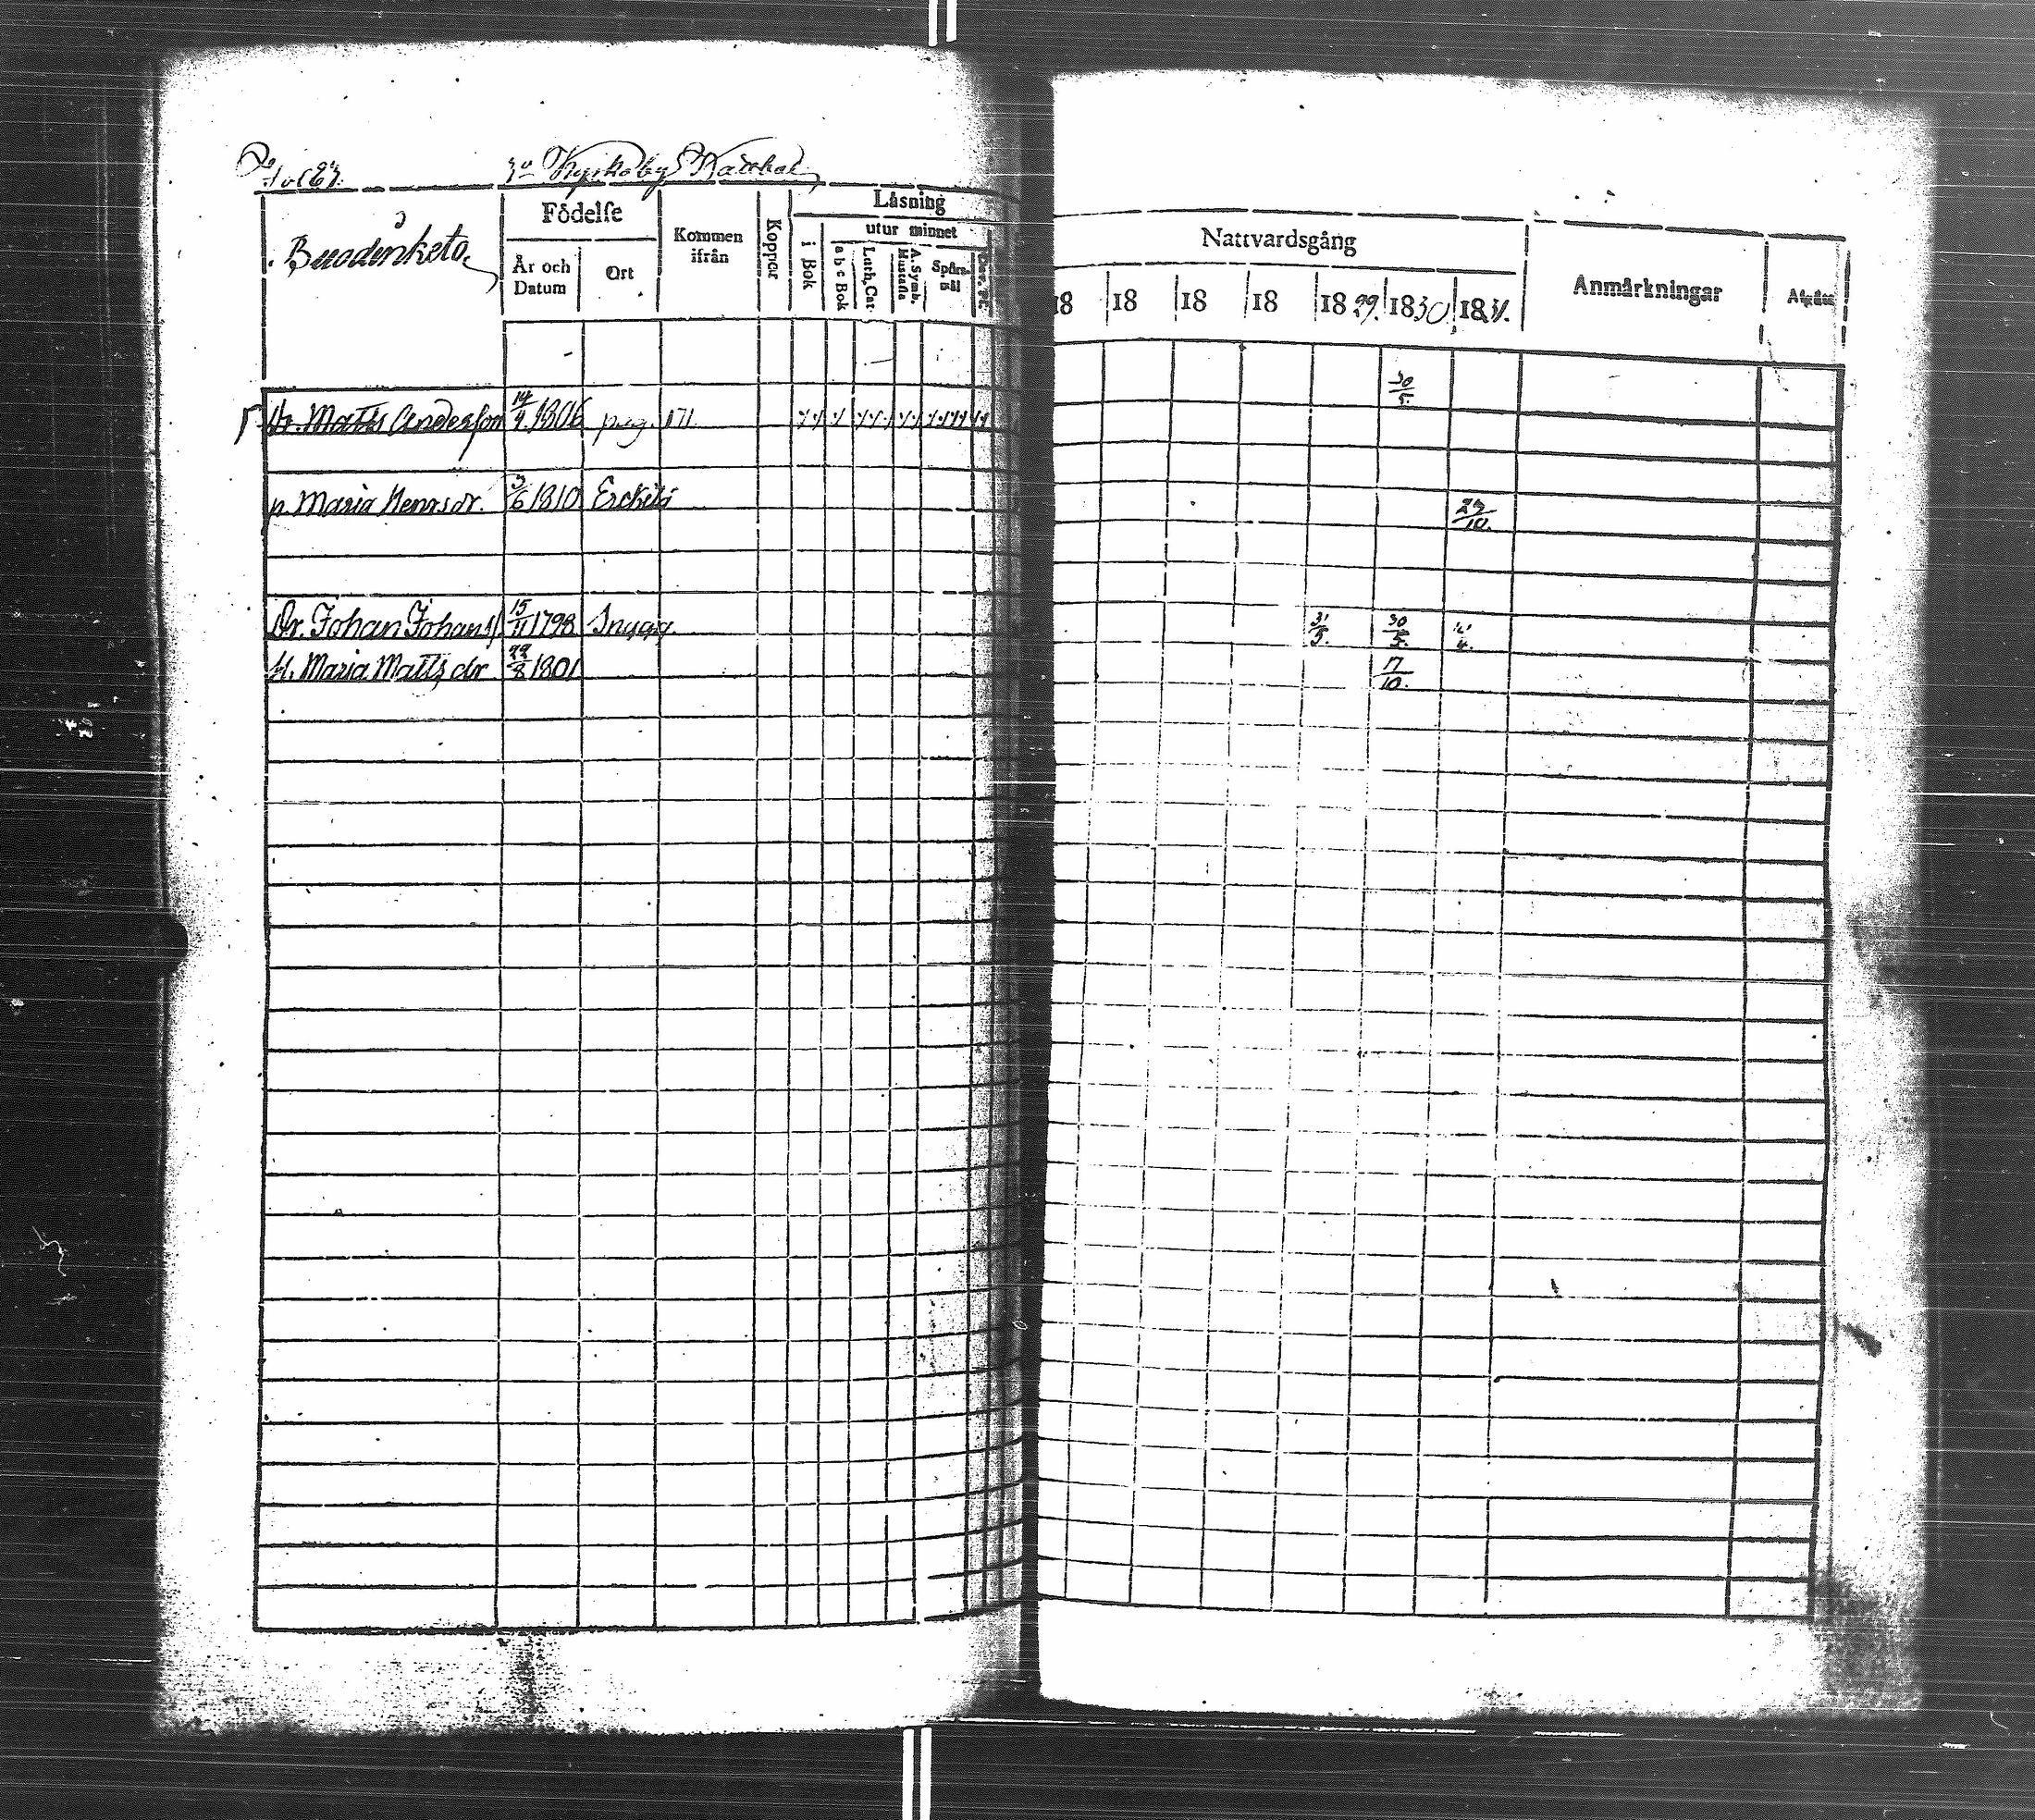 Kyrkoby
Buodinketo.
Födelse
År och Datum
Ort
Kommen ifrån
Koppor
Läsning
utur minnet
i Bok
a b c Bok
Luth. Cat
A. Symb. Hustafla
Spörsmål
Nattvardsgång
18 18 18 18 1829. 1830 1831.
Anmärkningar
Dr. Matts Andersson 14/4 1806 pag. 171 30/5.
p. Maria Henrsdr. 3/6 1810 23/10.
Dr. Johan Johanss. 15/11 1798 31/5. 30/5. 4.
H. Maria Mattsdr 22/8 1801 17/10.